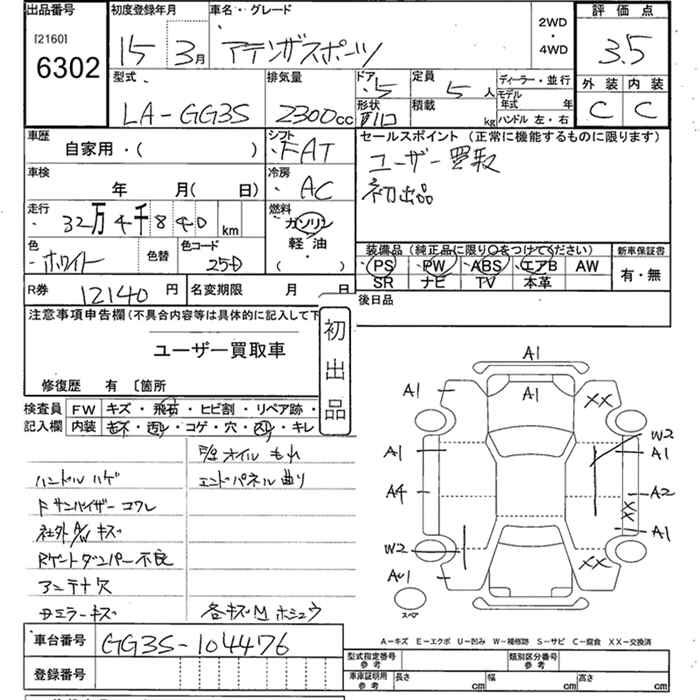 出品番号 初度登録年月 車名・グレード 2WD・4WD 評価点
[2160]
6302 15 3月 アテンザスポーツ 3.5
型式 排気量 ドア 5 定員 5人 ディーラー・並行 外装 内装
LA-GG3S 2300cc 形状 積載 kg モデル年式 年 ハンドル 左・右 C C
車歴 シフト セールスポイント (正常に機能するものに限ります)
自家用・( ) FAT ユーザー買取
車検 冷房 初出品
年 月( 日) AC
走行 燃料
32万4千840 km ガソリン
軽・油
( )
色 色替 色コード 装備品 (純正品に限り○をつけてください) 新車保証書
ホワイト 25D PS PW ABS エアB AW 有・無
SR ナビ TV 本革
R券 12140円 名変期限 月 日 後日品
注意事項申告欄(不具合内容等は具体的に記入して下
初出品
ユーザー買取車
修復歴 有 [箇所
検査員 FW キズ・飛石・ヒビ割・リペア跡・
記入欄 内装 キズ・汚れ・コゲ・穴・スレ・キレ
オイルもれ
ハンドルハゲ エンドパネル曲り
Fサンバイザーコワレ
社外A/Wキズ
Rゲートダンパー不良
アンテナ欠
ミラーキズ 各キズ ホシュウ
A1
A1 A1 XX
W2
A1 A1
A4 A2
X
X
A1
W2 XX
AU1
スペア
A-キズ E-エクボ U-凹み W-補修跡 S-サビ C-腐食 XX-交換済
車台番号 GG3S-104476
型式指定番号 参考 類別区分番号 参考
登録番号 車庫証明用 参考 長さ cm 幅 cm 高さ cm